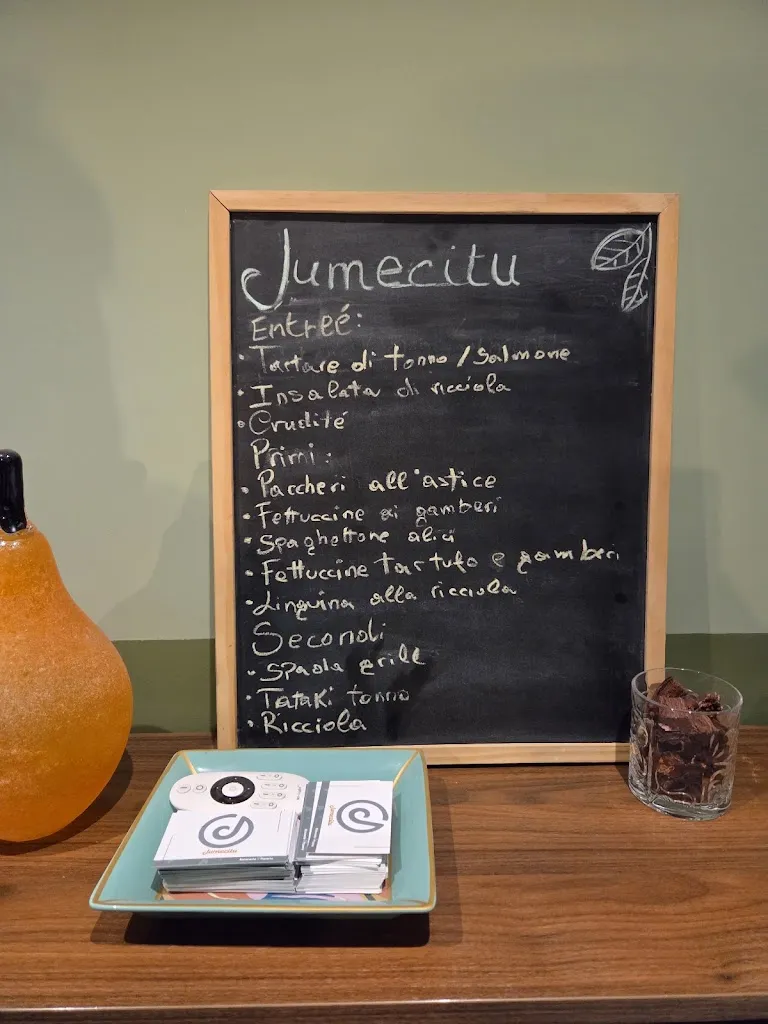 Jumecitu
Entreé:
• Tartare di tonno / Salmone
• Insalata di ricciola
• Crudité
Primi:
• Paccheri all'astice
• Fettuccine ai gamberi
• Spaghettone alici
• Fettuccine tartufo e gamberi
• Linguina alla ricciola
Secondi
• Spada grill
• Tataki tonno
• Ricciola
Jumecitu